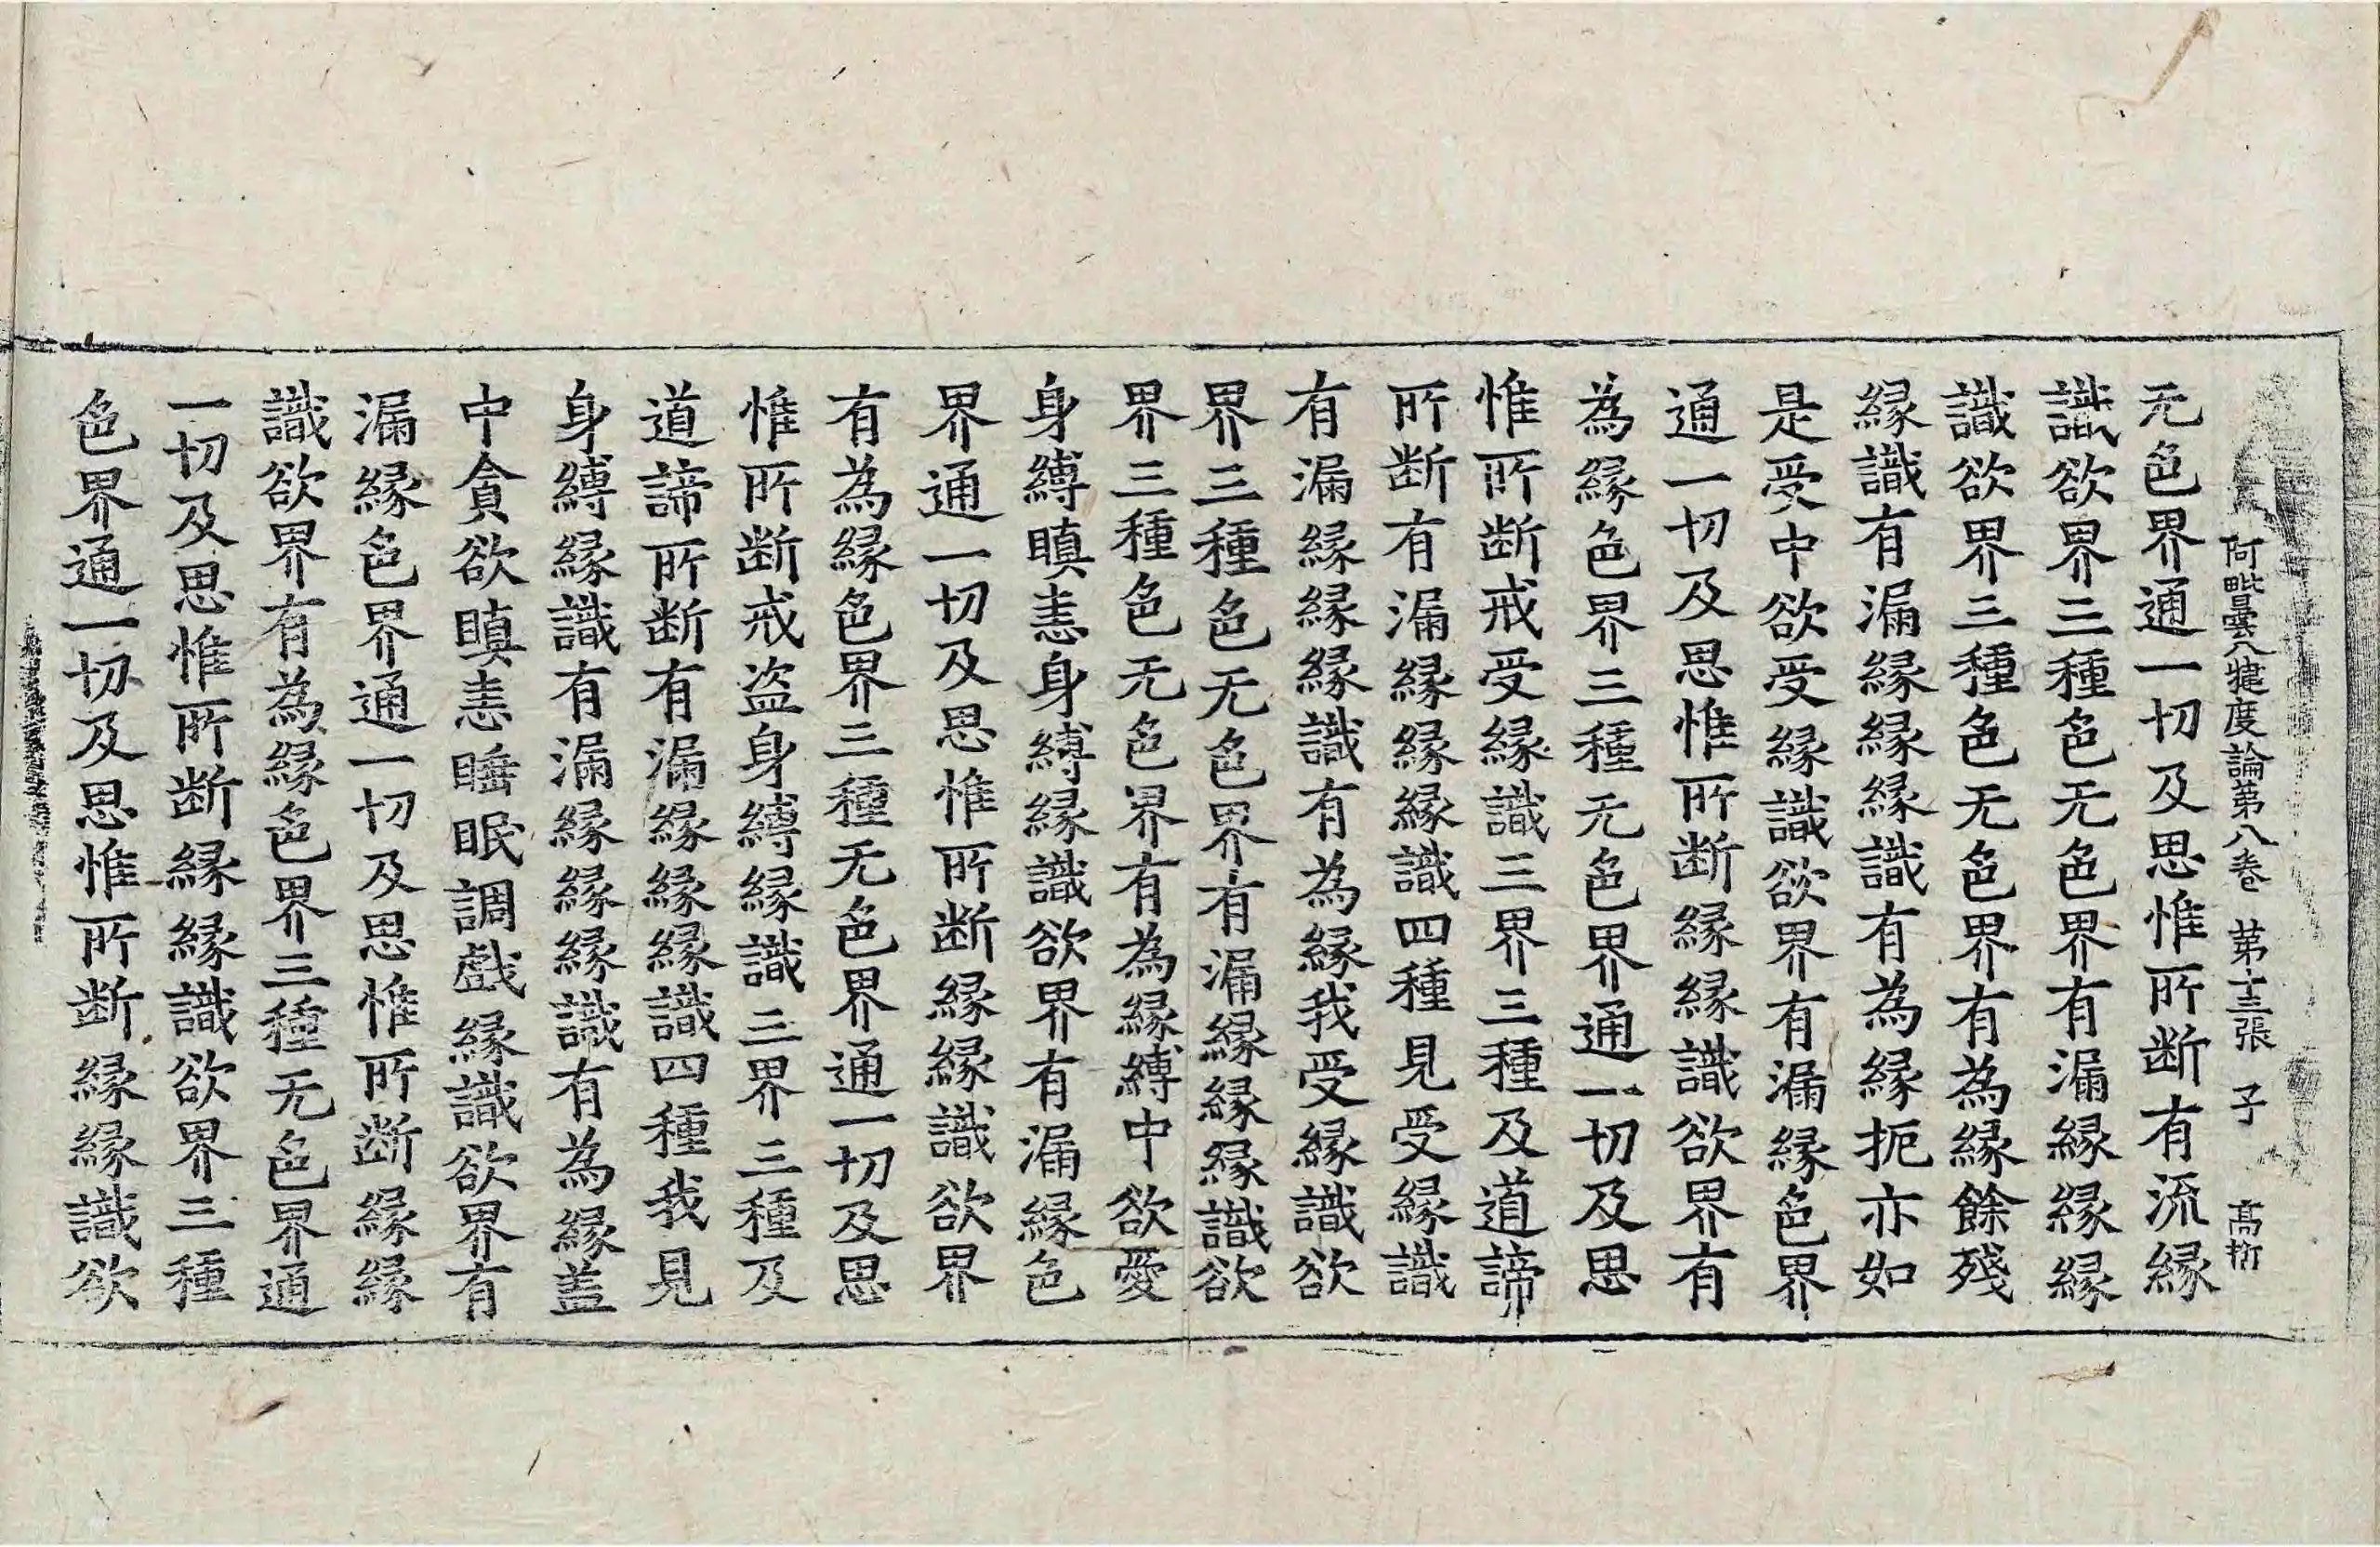 阿毗曇八犍度論第八卷 第十三張 子 髙
无色界通一切及思惟所断有流縁
識欲界三種色无色界有漏縁縁縁
識欲界三種色无色界有為縁餘殘
縁識有漏縁縁縁識有為縁扼亦如
是受中欲受縁識欲界有漏縁色界
通一切及思惟所断縁縁識欲界有
為縁色界三種无色界通一切及思
惟所断戒受縁識三界三種及道諦
所断有漏縁縁縁識四種見受縁識
有漏縁縁縁識有為縁我受縁識欲
界三種色无色界有漏縁縁縁識欲
界三種色无色界有為縁縛中欲愛
身縛瞋恚身縛縁識欲界有漏縁色
界通一切及思惟所断縁縁識欲界
有為縁色界三種无色界通一切及思
惟所断戒盗身縛縁識三界三種及
道諦所断有漏縁縁縁識四種我見
身縛縁識有漏縁縁縁識有為縁盖
中貪欲瞋恚睡眠調戲縁識欲界有
漏縁色界通一切及思惟所断縁縁
識欲界有為縁色界三種无色界通
一切及思惟所断縁縁識欲界三種
色界通一切及思惟所断縁縁識欲